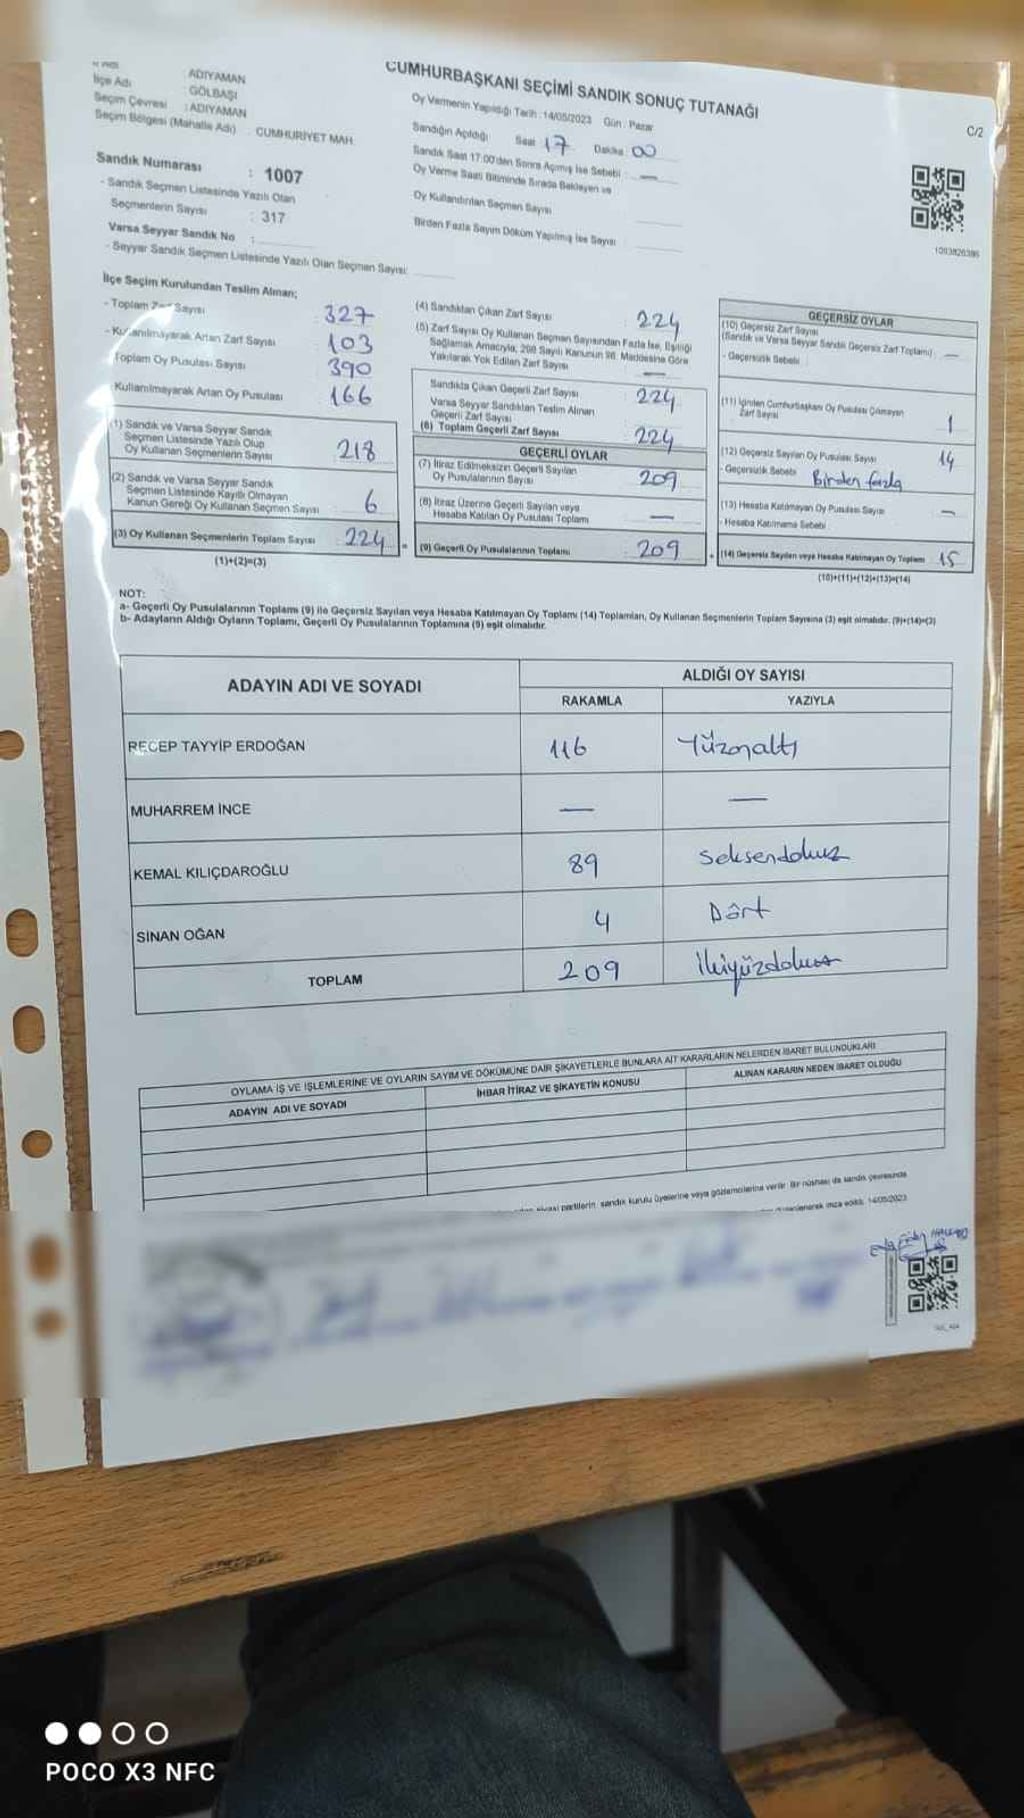 CUMHURBAŞKANI SEÇİMİ SANDIK SONUÇ TUTANAĞI
C/2
: ADIYAMAN
İlçe Adı : GÖLBAŞI
Seçim Çevresi : ADIYAMAN
Seçim Bölgesi (Mahalle Adı) : CUMHURİYET MAH.
Sandık Numarası : 1007
- Sandık Seçmen Listesinde Yazılı Olan
Seçmenlerin Sayısı : 317
Varsa Seyyar Sandık No :
- Seyyar Sandık Seçmen Listesinde Yazılı Olan Seçmen Sayısı:
Oy Vermenin Yapıldığı Tarih : 14/05/2023 Gün : Pazar
Sandığın Açıldığı Saat 17 Dakika : 00
Sandık Saat 17:00'den Sonra Açılmış İse Sebebi : —
Oy Verme Saati Bitiminde Sırada Bekleyen ve
Oy Kullandırılan Seçmen Sayısı
Birden Fazla Sayım Döküm Yapılmış İse Sayısı
1093826396
İlçe Seçim Kurulundan Teslim Alınan;
- Toplam Zarf Sayısı 327
- Kullanılmayarak Artan Zarf Sayısı 103
Toplam Oy Pusulası Sayısı 390
Kullanılmayarak Artan Oy Pusulası 166
(1) Sandık ve Varsa Seyyar Sandık
Seçmen Listesinde Yazılı Olup
Oy Kullanan Seçmenlerin Sayısı 218
(2) Sandık ve Varsa Seyyar Sandık
Seçmen Listesinde Kayıtlı Olmayan
Kanun Gereği Oy Kullanan Seçmen Sayısı 6
(3) Oy Kullanan Seçmenlerin Toplam Sayısı 224 =
(1)+(2)=(3)
(4) Sandıktan Çıkan Zarf Sayısı : 224
(5) Zarf Sayısı Oy Kullanan Seçmen Sayısından Fazla İse, Eşitliği
Sağlamak Amacıyla, 298 Sayılı Kanunun 98. Maddesine Göre
Yakılarak Yok Edilen Zarf Sayısı —
Sandıkta Çıkan Geçerli Zarf Sayısı : 224
Varsa Seyyar Sandıktan Teslim Alınan
Geçerli Zarf Sayısı
(6) Toplam Geçerli Zarf Sayısı 224
GEÇERLİ OYLAR
(7) İtiraz Edilmeksizin Geçerli Sayılan
Oy Pusulalarının Sayısı 209
(8) İtiraz Üzerine Geçerli Sayılan veya
Hesaba Katılan Oy Pusulası Toplamı —
(9) Geçerli Oy Pusulalarının Toplamı 209 +
GEÇERSİZ OYLAR
(10) Geçersiz Zarf Sayısı
(Sandık ve Varsa Seyyar Sandık Geçersiz Zarf Toplamı) —
- Geçersizlik Sebebi :
(11) İçinden Cumhurbaşkanı Oy Pusulası Çıkmayan
Zarf Sayısı 1
(12) Geçersiz Sayılan Oy Pusulası Sayısı 14
- Geçersizlik Sebebi : Birden fazla
(13) Hesaba Katılmayan Oy Pusulası Sayısı —
- Hesaba Katılmama Sebebi
(14) Geçersiz Sayılan veya Hesaba Katılmayan Oy Toplamı 15
(10)+(11)+(12)+(13)=(14)
NOT:
a- Geçerli Oy Pusulalarının Toplamı (9) ile Geçersiz Sayılan veya Hesaba Katılmayan Oy Toplamı (14) Toplamları, Oy Kullanan Seçmenlerin Toplam Sayısına (3) eşit olmalıdır. (9)+(14)=(3)
b- Adayların Aldığı Oyların Toplamı, Geçerli Oy Pusulalarının Toplamına (9) eşit olmalıdır.
ADAYIN ADI VE SOYADI
ALDIĞI OY SAYISI
RAKAMLA YAZIYLA
RECEP TAYYİP ERDOĞAN 116 Yüzonaltı
MUHARREM İNCE — —
KEMAL KILIÇDAROĞLU 89 Seksendokuz
SİNAN OĞAN 4 Dört
TOPLAM 209 İkiyüzdokuz
OYLAMA İŞ VE İŞLEMLERİNE VE OYLARIN SAYIM VE DÖKÜMÜNE DAİR ŞİKAYETLERLE BUNLARA AİT KARARLARIN NELERDEN İBARET BULUNDUKLARI
ADAYIN ADI VE SOYADI İHBAR İTİRAZ VE ŞİKAYETİN KONUSU ALINAN KARARIN NEDEN İBARET OLDUĞU
siyasi partilerin, sandık kurulu üyelerine veya gözlemcilerine verilir. Bir nüshası da sandık çevresinde
düzenlenerek imza edildi. 14/05/2023
POCO X3 NFC